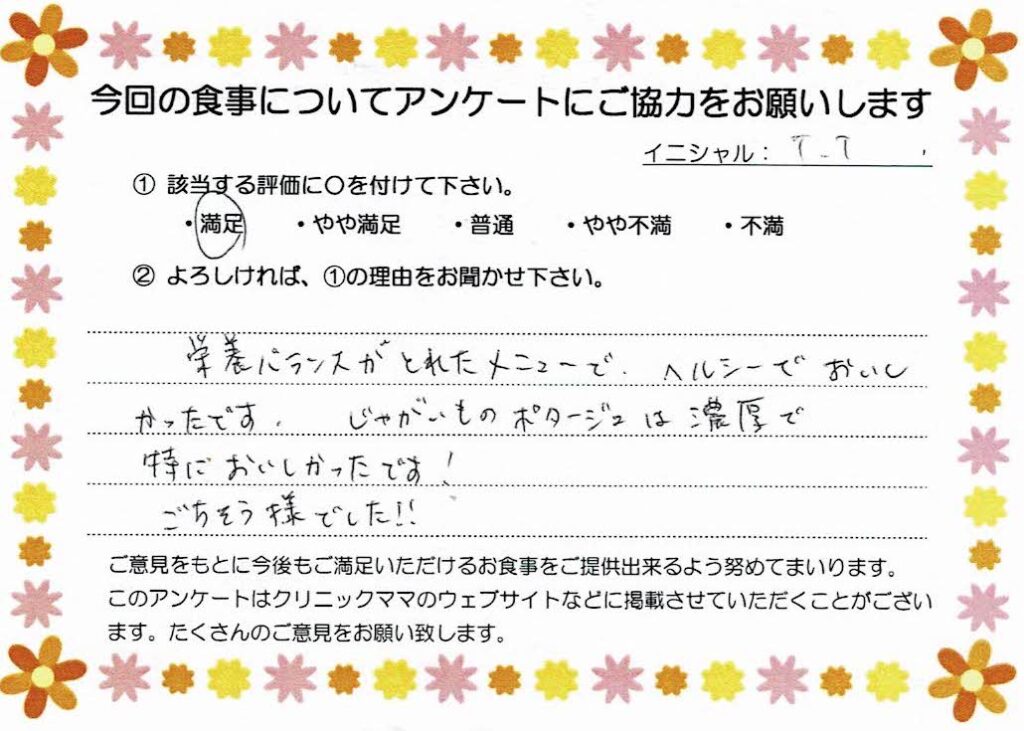 今回の食事についてアンケートにご協力をお願いします
イニシャル： T.T
① 該当する評価に〇を付けて下さい。
・満足 ・やや満足 ・普通 ・やや不満 ・不満
② よろしければ、①の理由をお聞かせ下さい。
栄養バランスがとれたメニューで、ヘルシーでおいし
かったです。 じゃがいものポタージュは濃厚で
特においしかったです！
ごちそう様でした!!
ご意見をもとに今後もご満足いただけるお食事をご提供出来るよう努めてまいります。
このアンケートはクリニックママのウェブサイトなどに掲載させていただくことがござい
ます。たくさんのご意見をお願い致します。